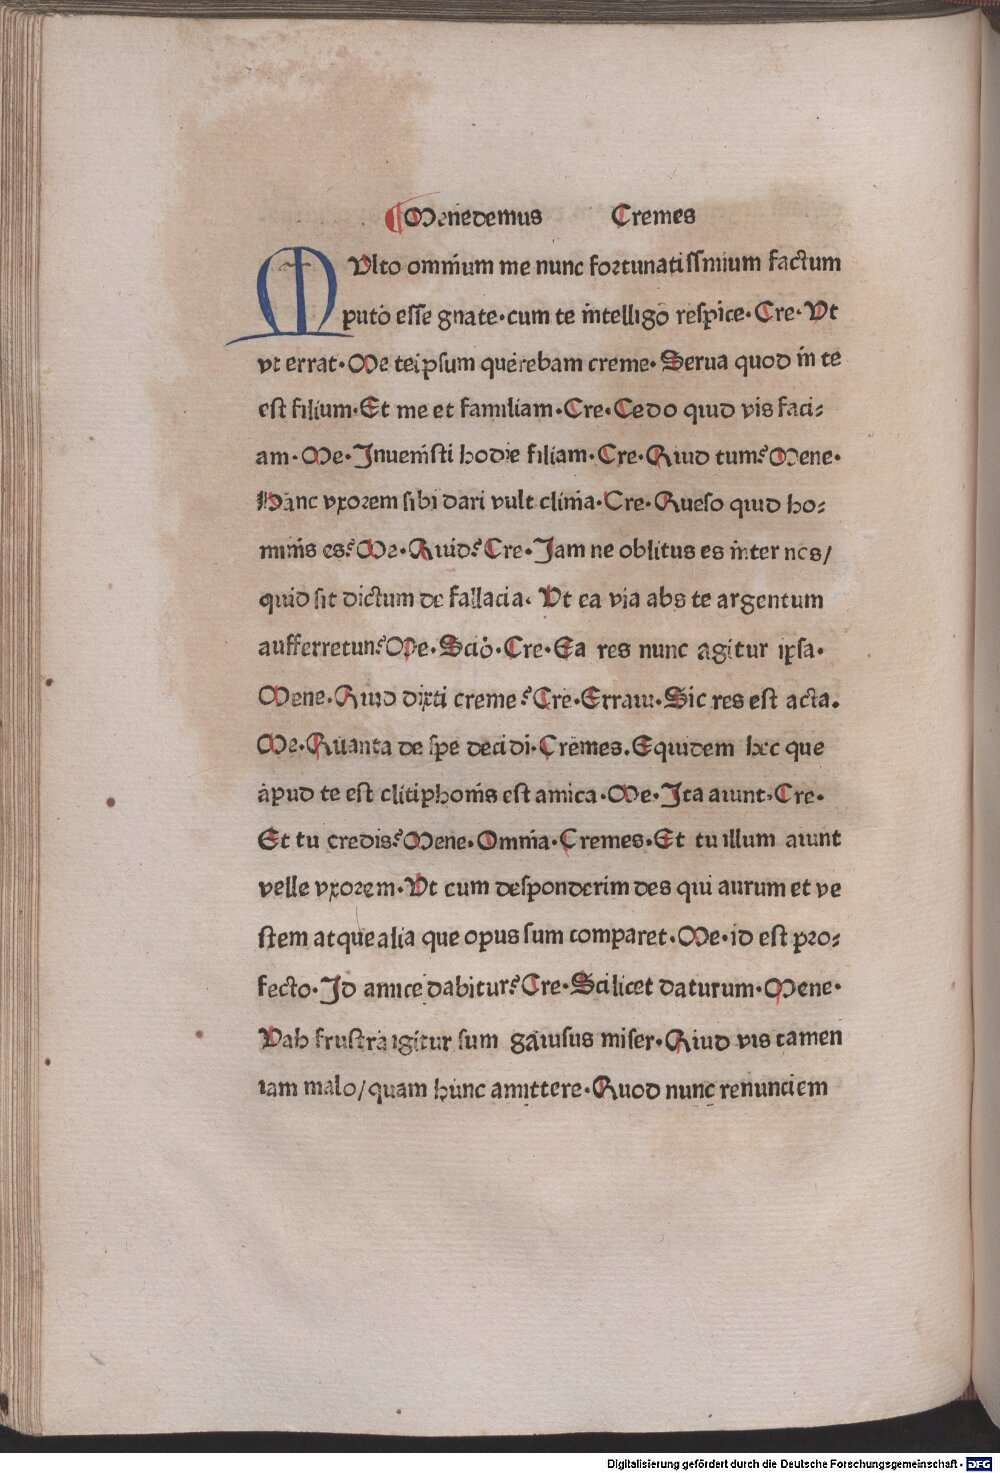 Menedemus Cremes
MVlto omnium me nunc fortunatissimum factum
puto esse gnate·cum te intelligo respice·Cre·Vt
vt errat·Me teipsum querebam creme·Serua quod in te
est filium·Et me et familiam·Cre·Cedo quid vis faci⸗
am·Me·Inuenisti hodie filiam·Cre·Quid tum?Mene·
Hanc vxorem sibi dari vult clinia·Cre·Queso quid ho⸗
minis es?Me·Quid?Cre·Iam ne oblitus es inter nos/
quid sit dictum de fallacia·Vt ea via abs te argentum
aufferretur?Me·Scio·Cre·Ea res nunc agitur ipsa·
Mene·Quid dixti creme?Cre·Erraui·Sic res est acta.
Me·Quanta de spe decidi·Cremes.Equidem hec que
apud te est clitiphonis est amica·Me·Ita aiunt·Cre·
Et tu credis?Mene·Omnia·Cremes·Et tu illum aiunt
velle vxorem·Vt cum desponderim des qui aurum et ve
stem atque alia que opus sum comparet·Me·id est pro⸗
fecto·Id amice dabitur?Cre·Scilicet daturum·Mene·
Vah frustra igitur sum gauisus miser·Quid vis tamen
iam malo/quam hunc amittere·Quod nunc renunciem
Digitalisierung gefördert durch die Deutsche Forschungsgemeinschaft - DFG